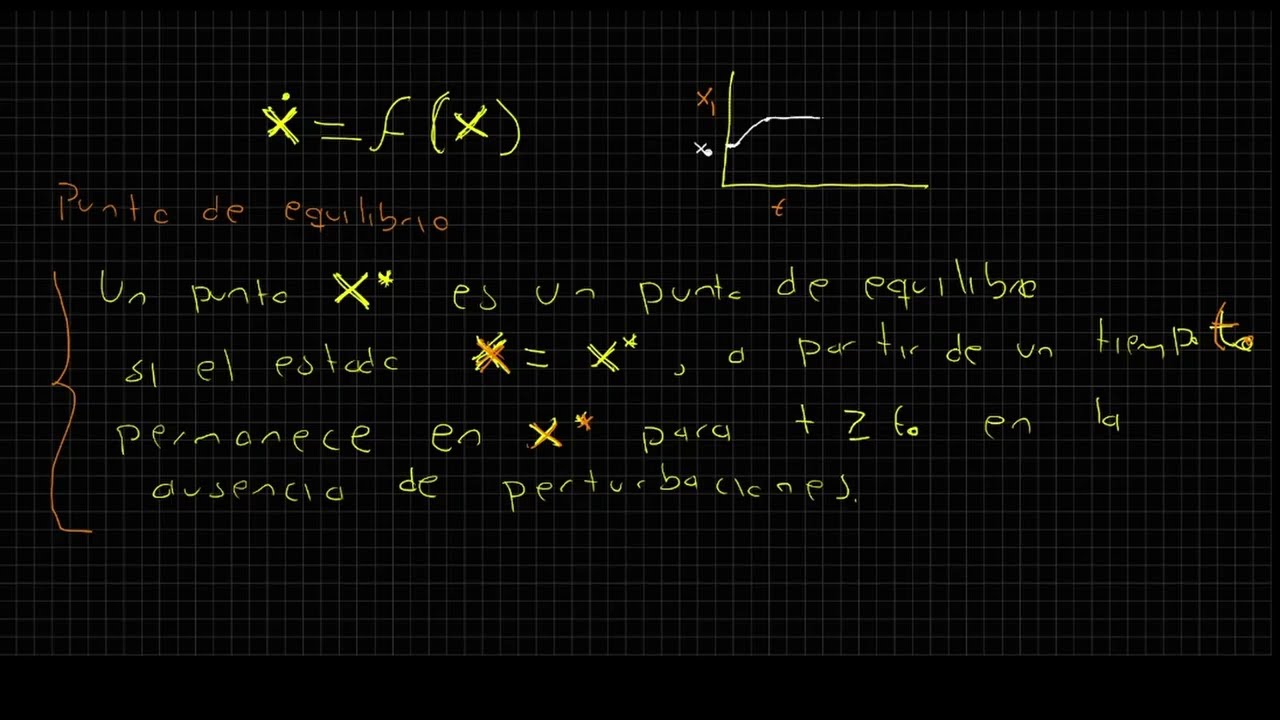 ẋ = f(x)
x₁
x₀
t
Punto de equilibrio
Un punto x* es un punto de equilibrio
si el estado x = x*, a partir de un tiempo t₀
permanece en x* para t ≥ t₀ en la
ausencia de perturbaciones.